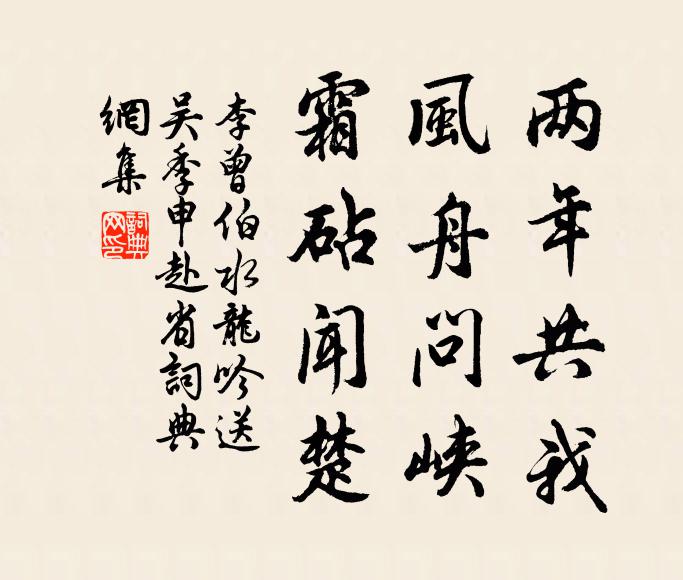 两年共我
風舟問峽
霜砧闻楚
李曾伯水龍吟送
吴季申赴省詞典
網集
詞典網印